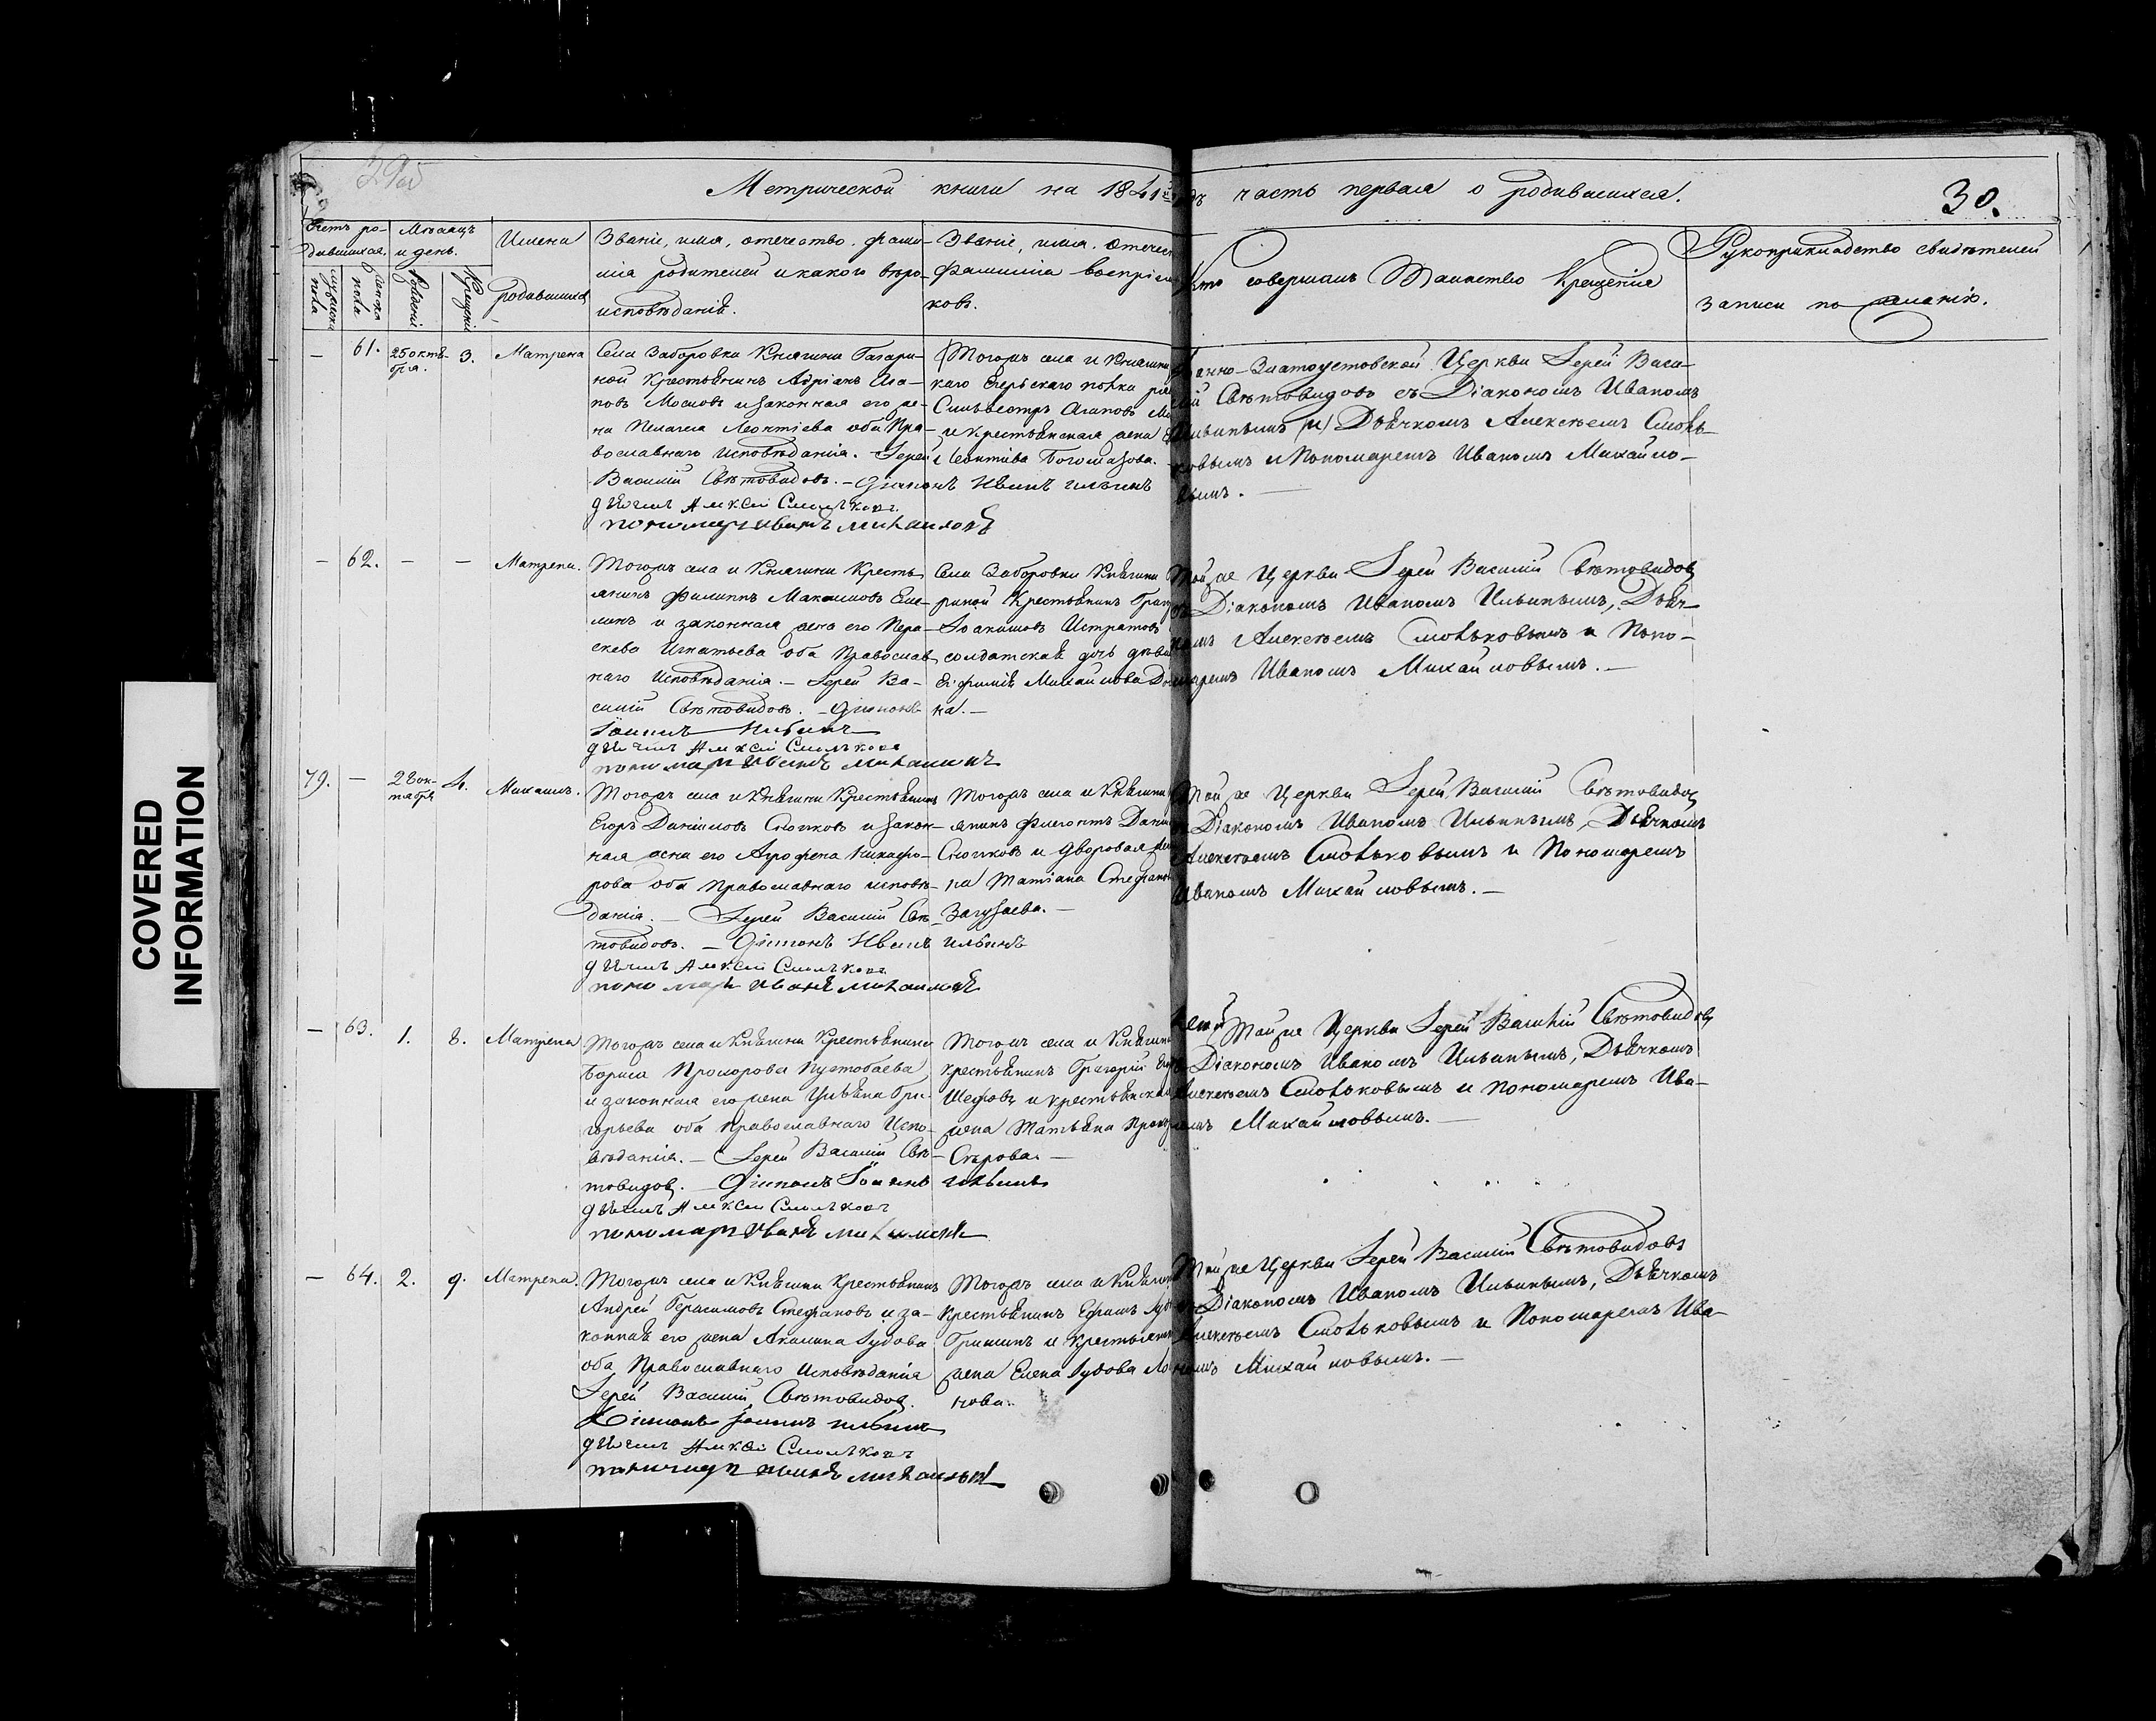 Метрической книги на 1841й годъ часть первая о родившихся.
30.
Счетъ ро-
дившихся.
мужеска
пола
женска
пола
Мѣсяцъ
и день.
Рожденiе
Крещенiе
Имена
родившихся
Званiе, имя, отечество, фами-
лiя родителей и какого вѣро-
исповѣданiя.
Званiе, имя, отечес
фамилiя воспрiем
ковъ.
Кто совершалъ Таинство Крещенiя
Рукоприкладство свидѣтелей
записи по
— 61. 25 октя-
бря. 3. Матрена
Села Заборовки Княгини Гагари-
ной Крестьянинъ Адрiанъ Ага-
повъ и законная его же-
на Пелагея Леонтiева оба Пра-
вославнаго исповѣданiя. — Iерей
Василий Свѣтовидовъ. — Дiаконъ Иванъ Ильинъ
дьячекъ Алексей Смольковъ
пономарь Иванъ Михайловъ
Тогожъ села и Княгини
каго Егерскаго полка
Сильвестръ Агаповъ
и крестьянская жена
Леонтiева Богомазова.
Iоанно-Златоустовской Церкви Iерей Васи-
лiй Свѣтовидовъ съ Дiакономъ Иваномъ
Ильинымъ (и) Дьячкомъ Алексѣемъ Смоль-
ковымъ и Пономаремъ Иваномъ Михайло-
вымъ. —
— 62. — — Матрена.
Тогожъ села и Княгини Кресть-
янинъ Филиппъ Максимовъ
и законная жена его Пара-
скева Игнатьева оба Православ-
наго Исповѣданiя. — Iерей Ва-
силiй Свѣтовидовъ. — Дiаконъ
Iоаннъ Ильинъ
дьячекъ Алексей Смольковъ
пономарь Иванъ Михайловъ
Села Заборовки Княгини
риной Крестьянинъ
Iоакимовъ Истратовъ
солдатская дочь дѣви
Ефимiя Михайлова
на. —
Той же Церкви Iерей Василiй Свѣтовидовъ
съ Дiакономъ Иваномъ Ильинымъ, Дьяч-
комъ Алексѣемъ Смольковымъ и Поно-
маремъ Иваномъ Михайловымъ. —
79. — 28 ок-
тября 4. Михаилъ.
Тогожъ села и Княгини Крестьянинъ
Егоръ Данiиловъ и закон-
ная жена его Агрофена Никифо-
рова оба православнаго исповѣ-
данiя. — Iерей Василiй Свѣ-
товидовъ. — Дiаконъ Иванъ Ильинъ
дьячекъ Алексей Смольковъ
пономарь Иванъ Михайловъ
Тогожъ села и Княгини
янинъ Флегонтъ Дани
и дворовая же
на Татiана Стефано
Той же Церкви Iерей Василiй Свѣтовидовъ
съ Дiакономъ Иваномъ Ильинымъ, Дьячкомъ
Алексѣемъ Смольковымъ и Пономаремъ
Иваномъ Михайловымъ. —
— 63. 1. 8. Матрена
Тогожъ села и Княгини Крестьянинъ
Бориса Прохорова Пустобаева
и законная его жена Ульяна Гри-
горьева оба православнаго Испо-
вѣданiя. — Iерей Василiй Свѣ-
товидовъ. — Дiаконъ Iоаннъ Ильинъ
дьячекъ Алексей Смольковъ
пономарь Иванъ Михайловъ
Тогожъ села и Княгини
крестьянинъ Григорiй
и крестьянская
жена Татьяна
Сѣрова. —
Той же Церкви Iерей Василiй Свѣтовидовъ
съ Дiакономъ Иваномъ Ильинымъ, Дьячкомъ
Алексѣемъ Смольковымъ и Пономаремъ Ива-
номъ Михайловымъ. —
— 64. 2. 9. Матрена.
Тогожъ села и Княгини Крестьянинъ
Андрей Герасимовъ Стефановъ и за-
конная его жена Акилина Iудова
оба Православнаго Исповѣданiя
Iерей Василiй Свѣтовидовъ.
Дiаконъ Iоаннъ Ильинъ
дьячекъ Алексей Смольковъ
пономарь Иванъ Михайловъ
Тогожъ села и Княгин
Крестьянинъ Ефимъ Iудо
Гришинъ и крестьянск
жена Елена Iудова
нова.
Той же Церкви Iерей Василiй Свѣтовидовъ
съ Дiакономъ Иваномъ Ильинымъ, Дьячкомъ
Алексѣемъ Смольковымъ и Пономаремъ Ива-
номъ Михайловымъ. —
COVERED
INFORMATION